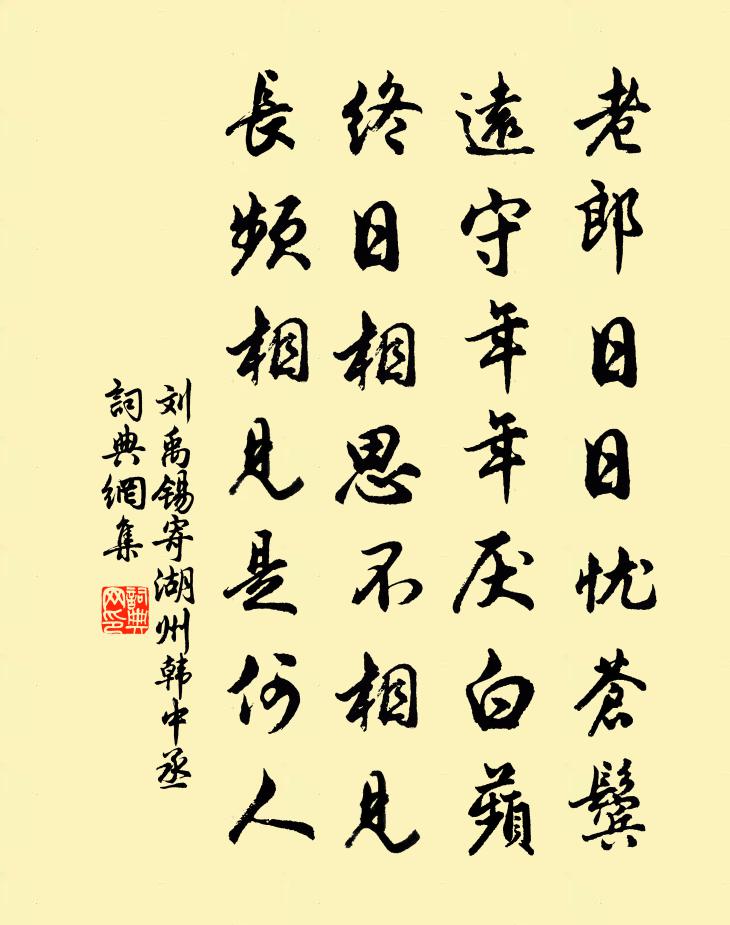 老郎日日忧蒼鬓
遠守年年厌白蘋
终日相思不相見
長頻相見是何人
刘禹锡寄湖州韩中丞
詞典網集
詞典网印